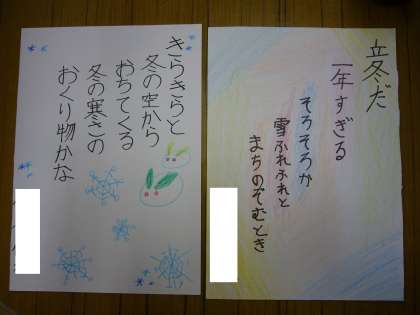 立冬だ
一年すぎる
そろそろか
雪ふれふれと
まちのぞむとき
きらきらと
冬の空から
おちてくる
冬の寒さの
おくり物かな